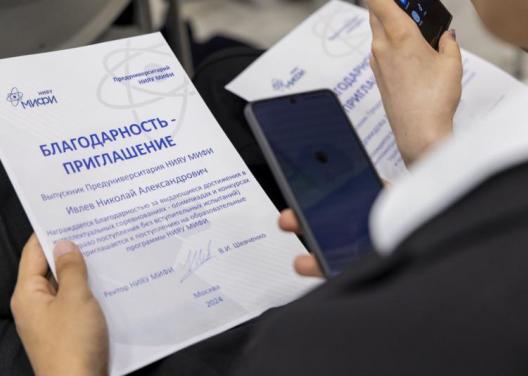 НИЯУ
МИФИ
Предуниверситарий
НИЯУ МИФИ
БЛАГОДАРНОСТЬ -
ПРИГЛАШЕНИЕ
Выпускник Предуниверситария НИЯУ МИФИ
Ивлев Николай Александрович
Награждается Благодарностью за выдающиеся достижения в
интеллектуальных соревнованиях - олимпиадах и конкурсах
право поступления без вступительных испытаний)
приглашается к поступлению на образовательные
программы НИЯУ МИФИ
Ректор НИЯУ МИФИ
В.И. Шевченко
Москва
2024
НИЯУ
МИФИ